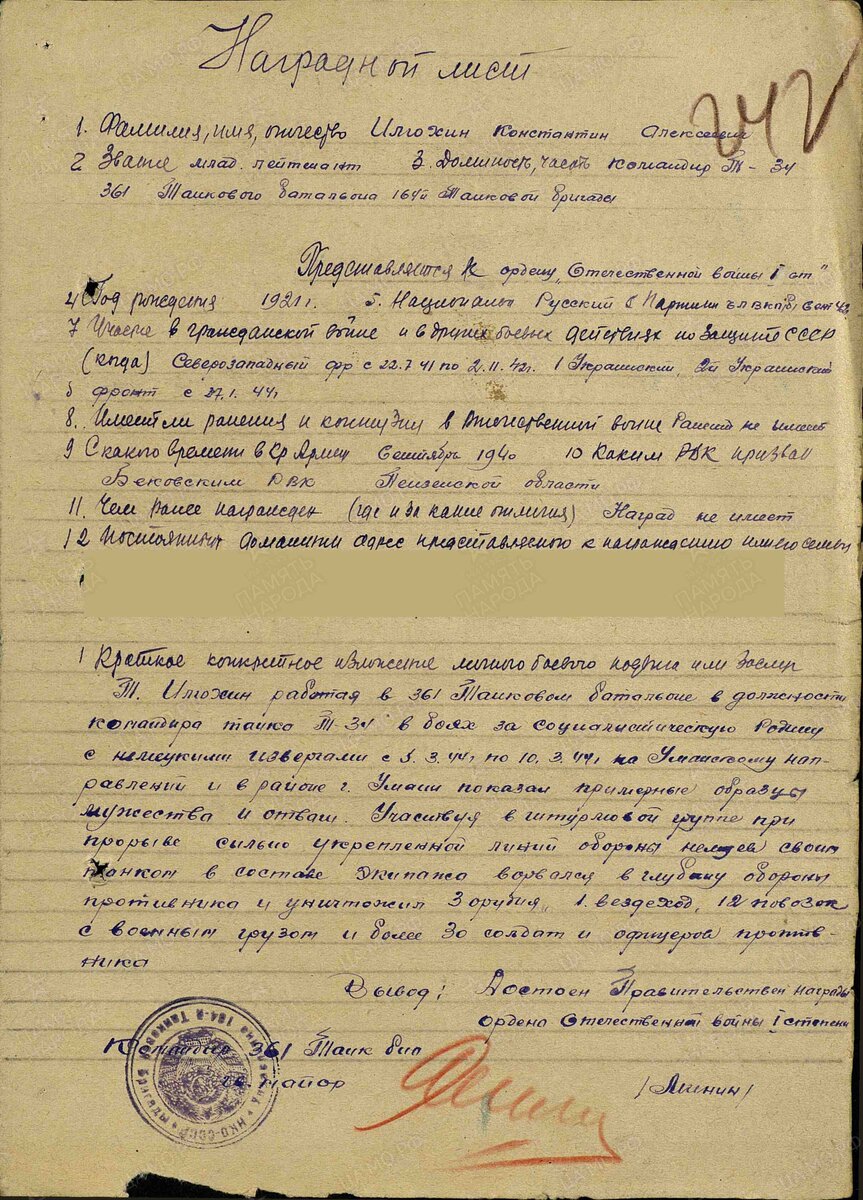 Наградной лист
242
1. Фамилия, имя, отчество Илюхин Константин Алексеевич
2 Звание млад. лейтенант 3. Должность, часть командир Т-34
361 Танкового батальона 164й Танковой Бригады
Представляется к ордену „Отечественной войны I ст"
4 Год рождения 1921 г. 5. Националън Русский 6 Партийн чл ВКП(б) с 42
7 Участие в гражданской войне и в других боевых действиях по защите СССР
(когда) Северозападный фр с 22.7 41 по 2.11.42г. 1 Украинский, 2й Украинский
фронт с 27.1.44г
8. Имеет ли ранения и контузии в Отечественной войне Ранений не имеет
9 С какого времени в Кр Армии Сентябрь 1940 10 Каким РВК призван
Бековским РВК Пензенской области
11. Чем ранее награжден (где и за какие отличия) Наград не имеет
12 Постоянный домашний адрес представляемого к награждению и его семьи
1 Краткое конкретное изложение личного боевого подвига или заслуг
Т. Илюхин работая в 361 Танковом батальоне в должности
командира танка Т-34 в боях за социалистическую Родину
с немецкими извергами с 5.3.44г по 10.3.44г на Уманскому нап-
равлений и в районе г. Умани показал примерные образцы
мужества и отваги. Участвуя в штурмовой группе при
прорыве сильно укрепленной линий обороны немцев своим
танком в составе экипажа ворвался в глубину обороны
противника и уничтожил 3 орудия, 1 вездеход, 12 повозок
с военным грузом и более 30 солдат и офицеров против-
ника
Вывод: Достоен Правительствен награды
ордена Отечественной войны I степени
Командир 361 Танк б-на
гв. майор /Минин/
НКО-СССР 164-й Танковой Бригады